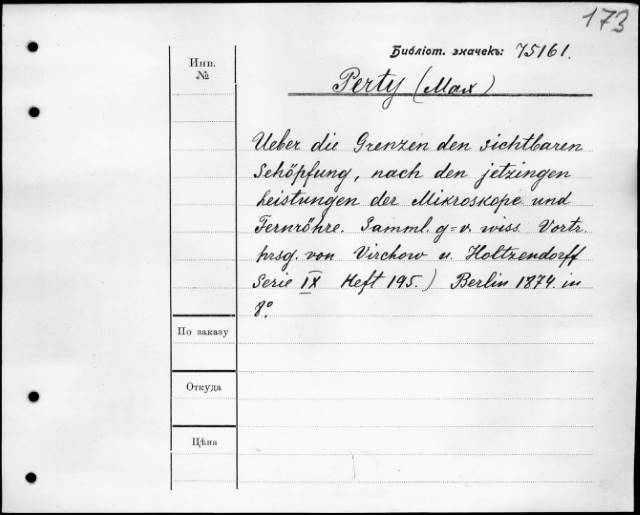 173
Библiот. значекъ: 75161.
Инв.
№
Perty (Max)
Ueber die Grenzen den sichtbaren
Schöpfung, nach den jetzingen
Leistungen der Mikroskope und
Fernröhre. Samml. g=v. wiss. Vortr.
hrsg. von Virchow u. Holtzendorff
Serie IX Heft 195.) Berlin 1874. in
8°.
По заказу
Откуда
Цѣна